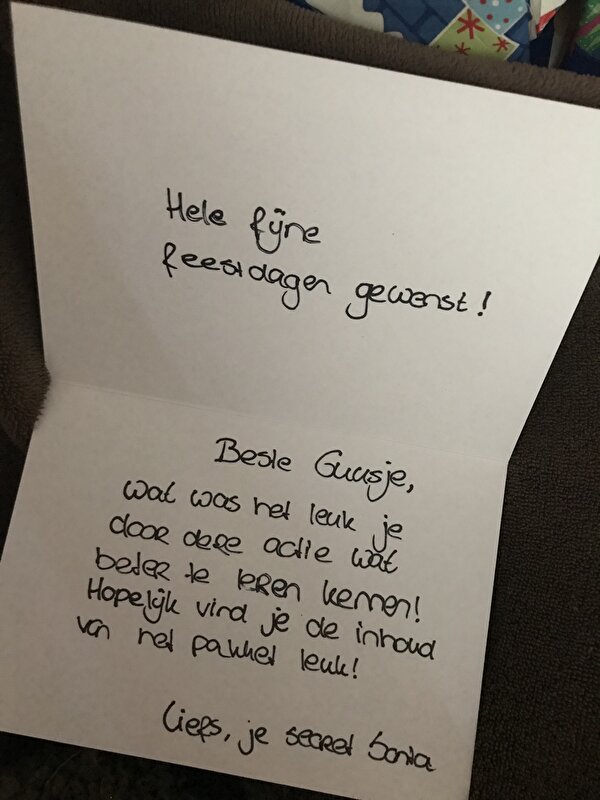 Hele fijne
feestdagen gewenst!
Beste Guusje,
wat was het leuk je
door deze actie wat
beter te leren kennen!
Hopelijk vind je de inhoud
van het pakket leuk!
Liefs, je secret Santa